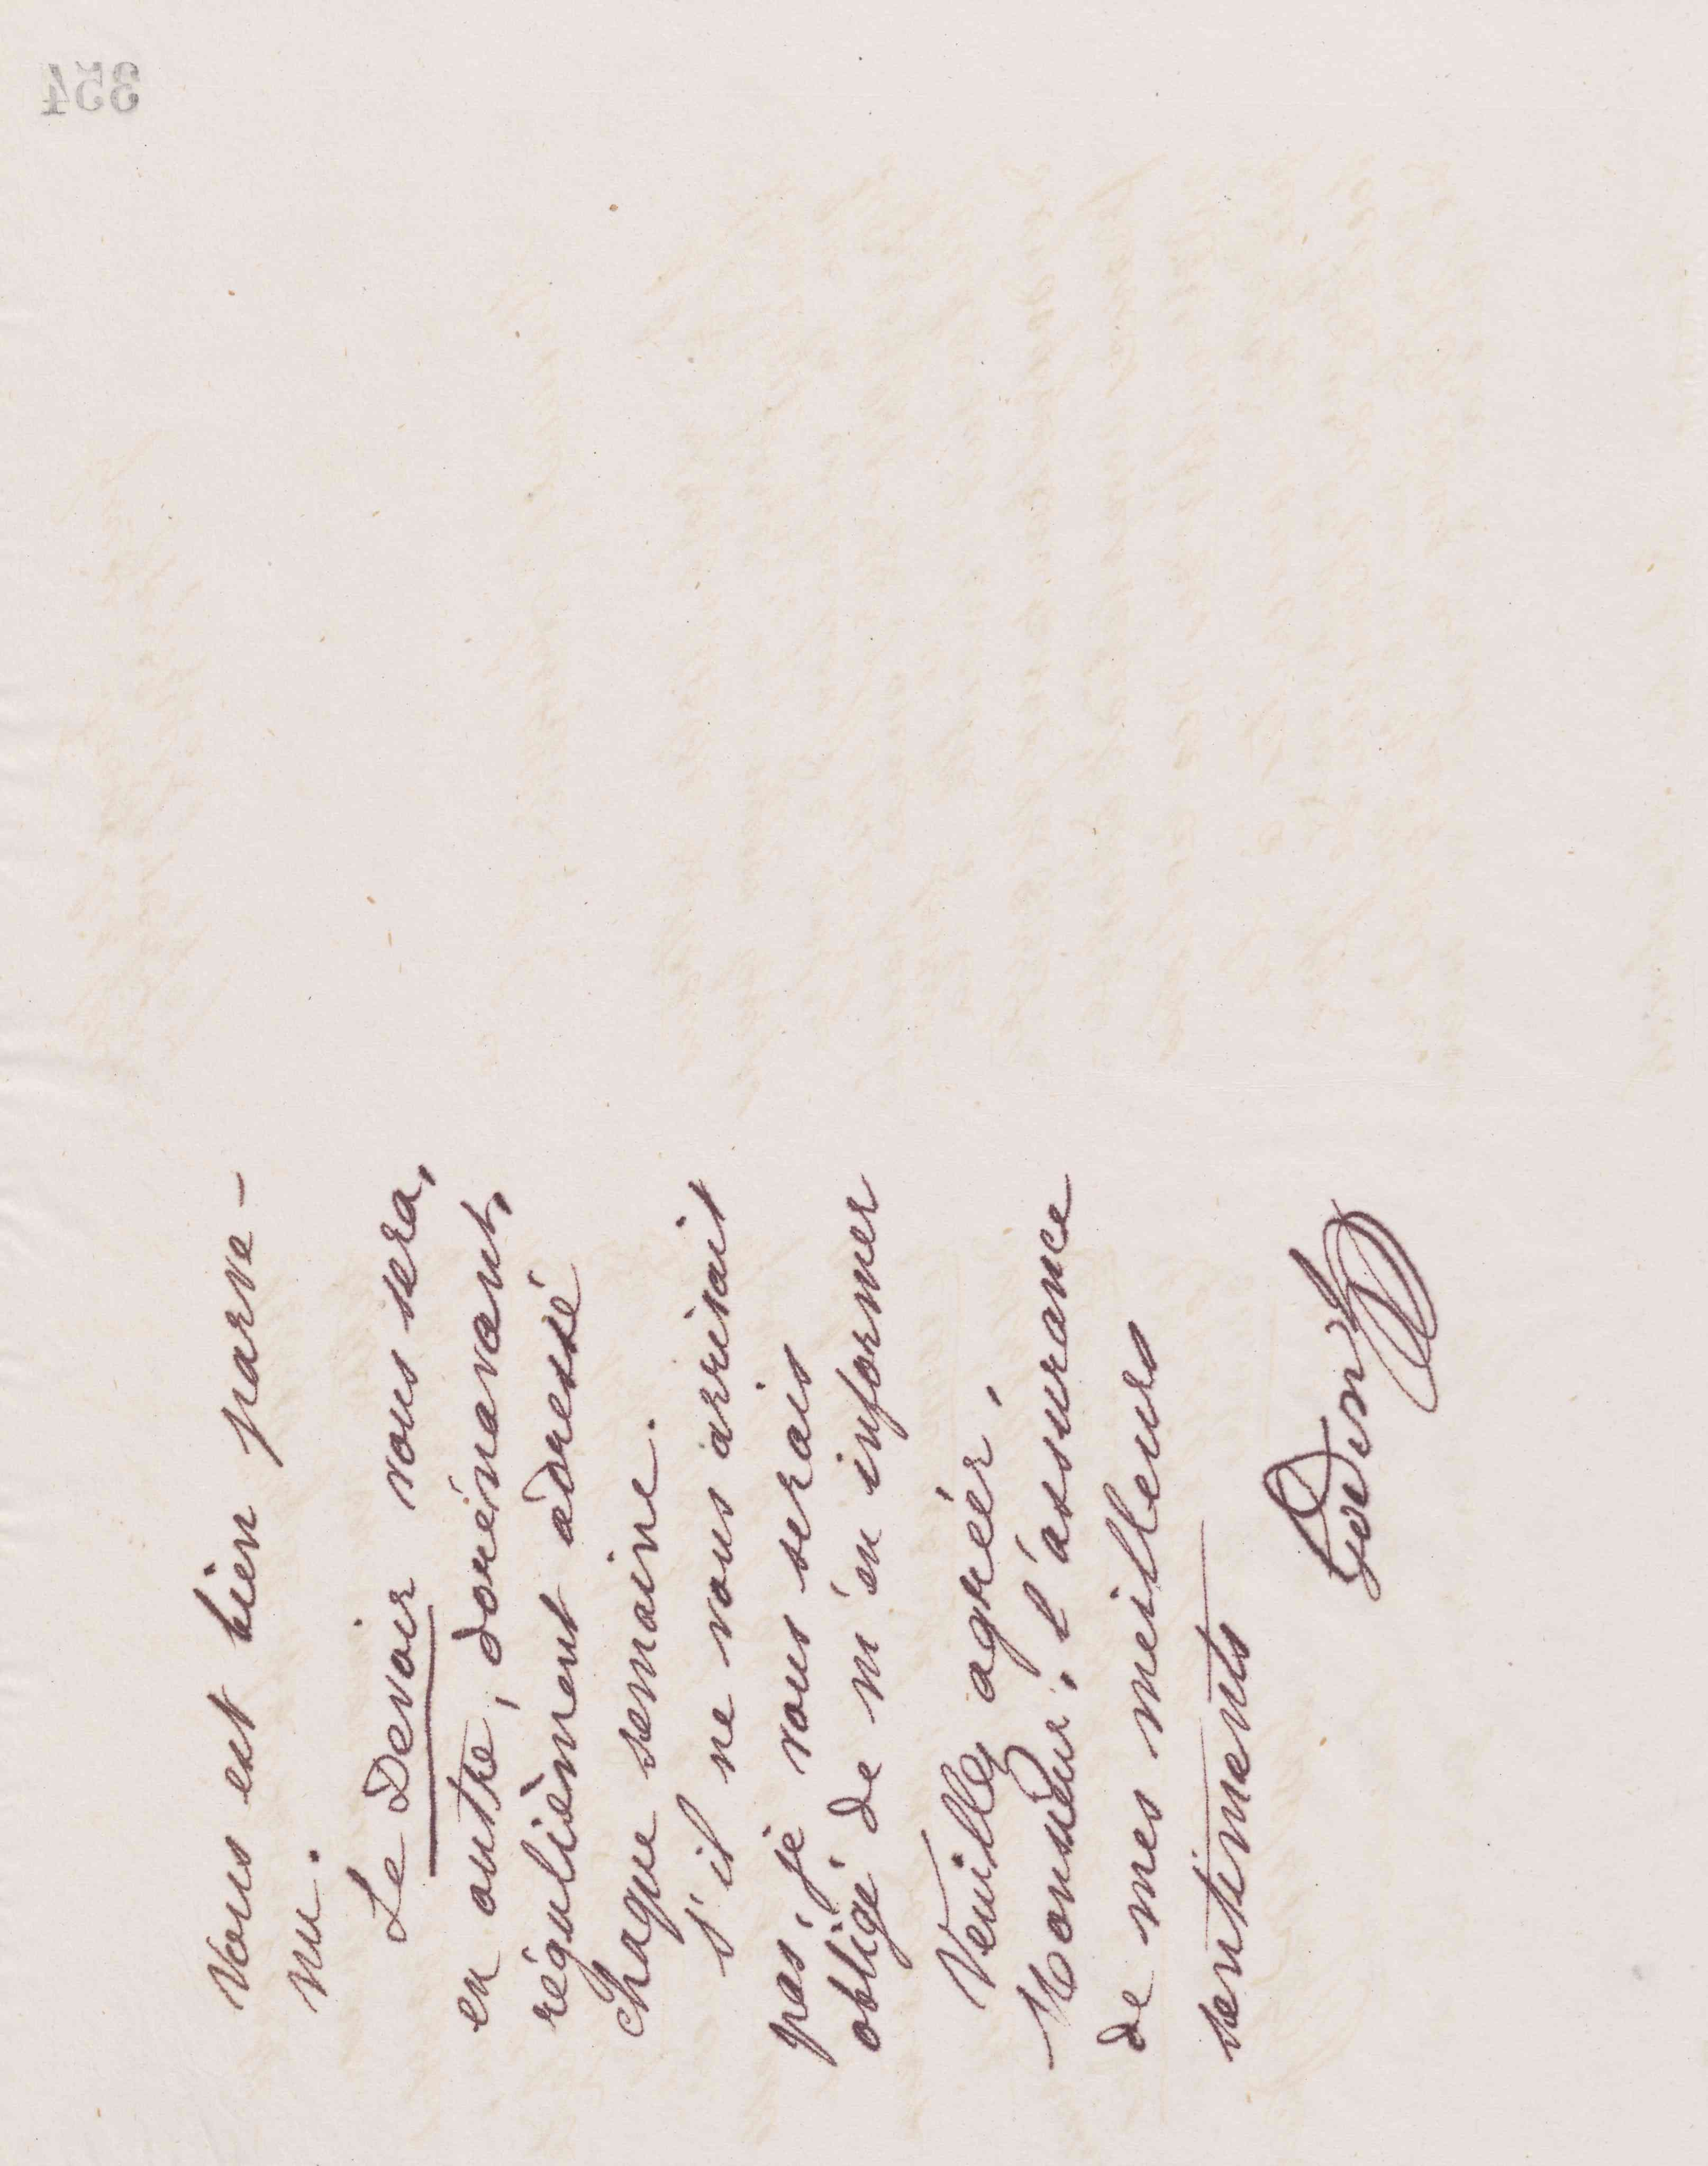 vous est bien parve-
nu.
Le Devoir vous sera,
en outre, dorénavant,
régulièrement adressé
chaque semaine.
s'il ne vous arrivait
pas, je vous serais
obligé de m'en informer
Veuillez agréer,
Monsieur, l'assurance
de mes meilleurs
sentiments
Godin
354